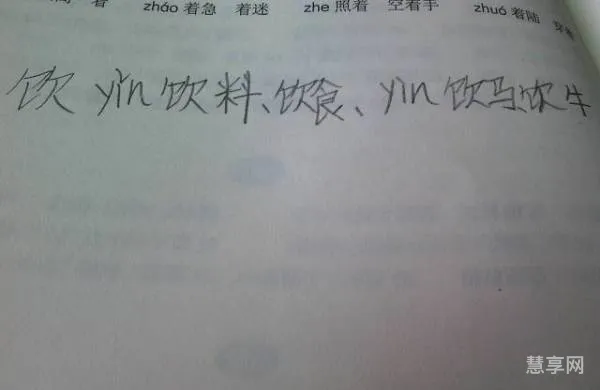 着 zháo 着急 着迷 zhe 照着 空着手 zhuó 着陆
饮 yǐn 饮料、饮食、yìn 饮马、饮牛
慧享网